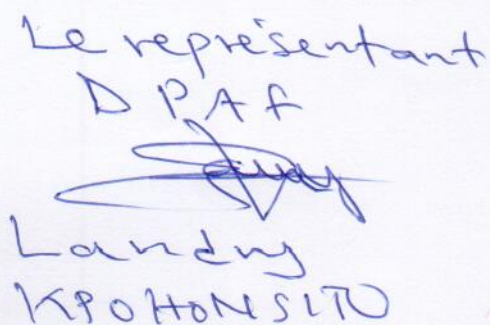 Le représentant
DPAF
Landry
KPOHONSITO